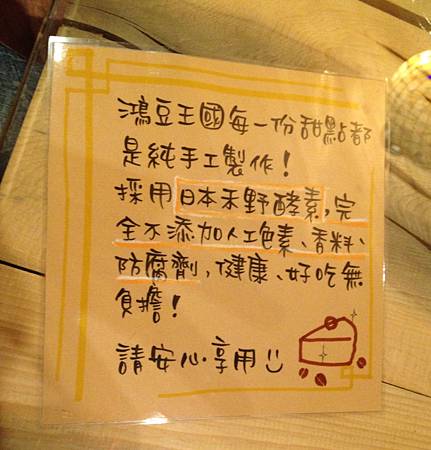 鴻豆王國每一份甜點都
是純手工製作！
採用日本禾野酵素，完
全不添加人工色素、香料、
防腐劑，健康、好吃無
負擔！
請安心享用